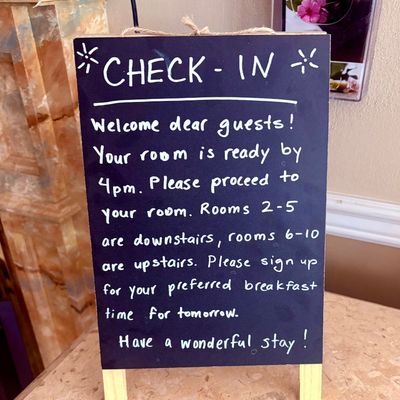 CHECK-IN
Welcome dear guests!
Your room is ready by
4pm. Please proceed to
your room. Rooms 2-5
are downstairs, rooms 6-10
are upstairs. Please sign up
for your preferred breakfast
time for tomorrow.
Have a wonderful stay!